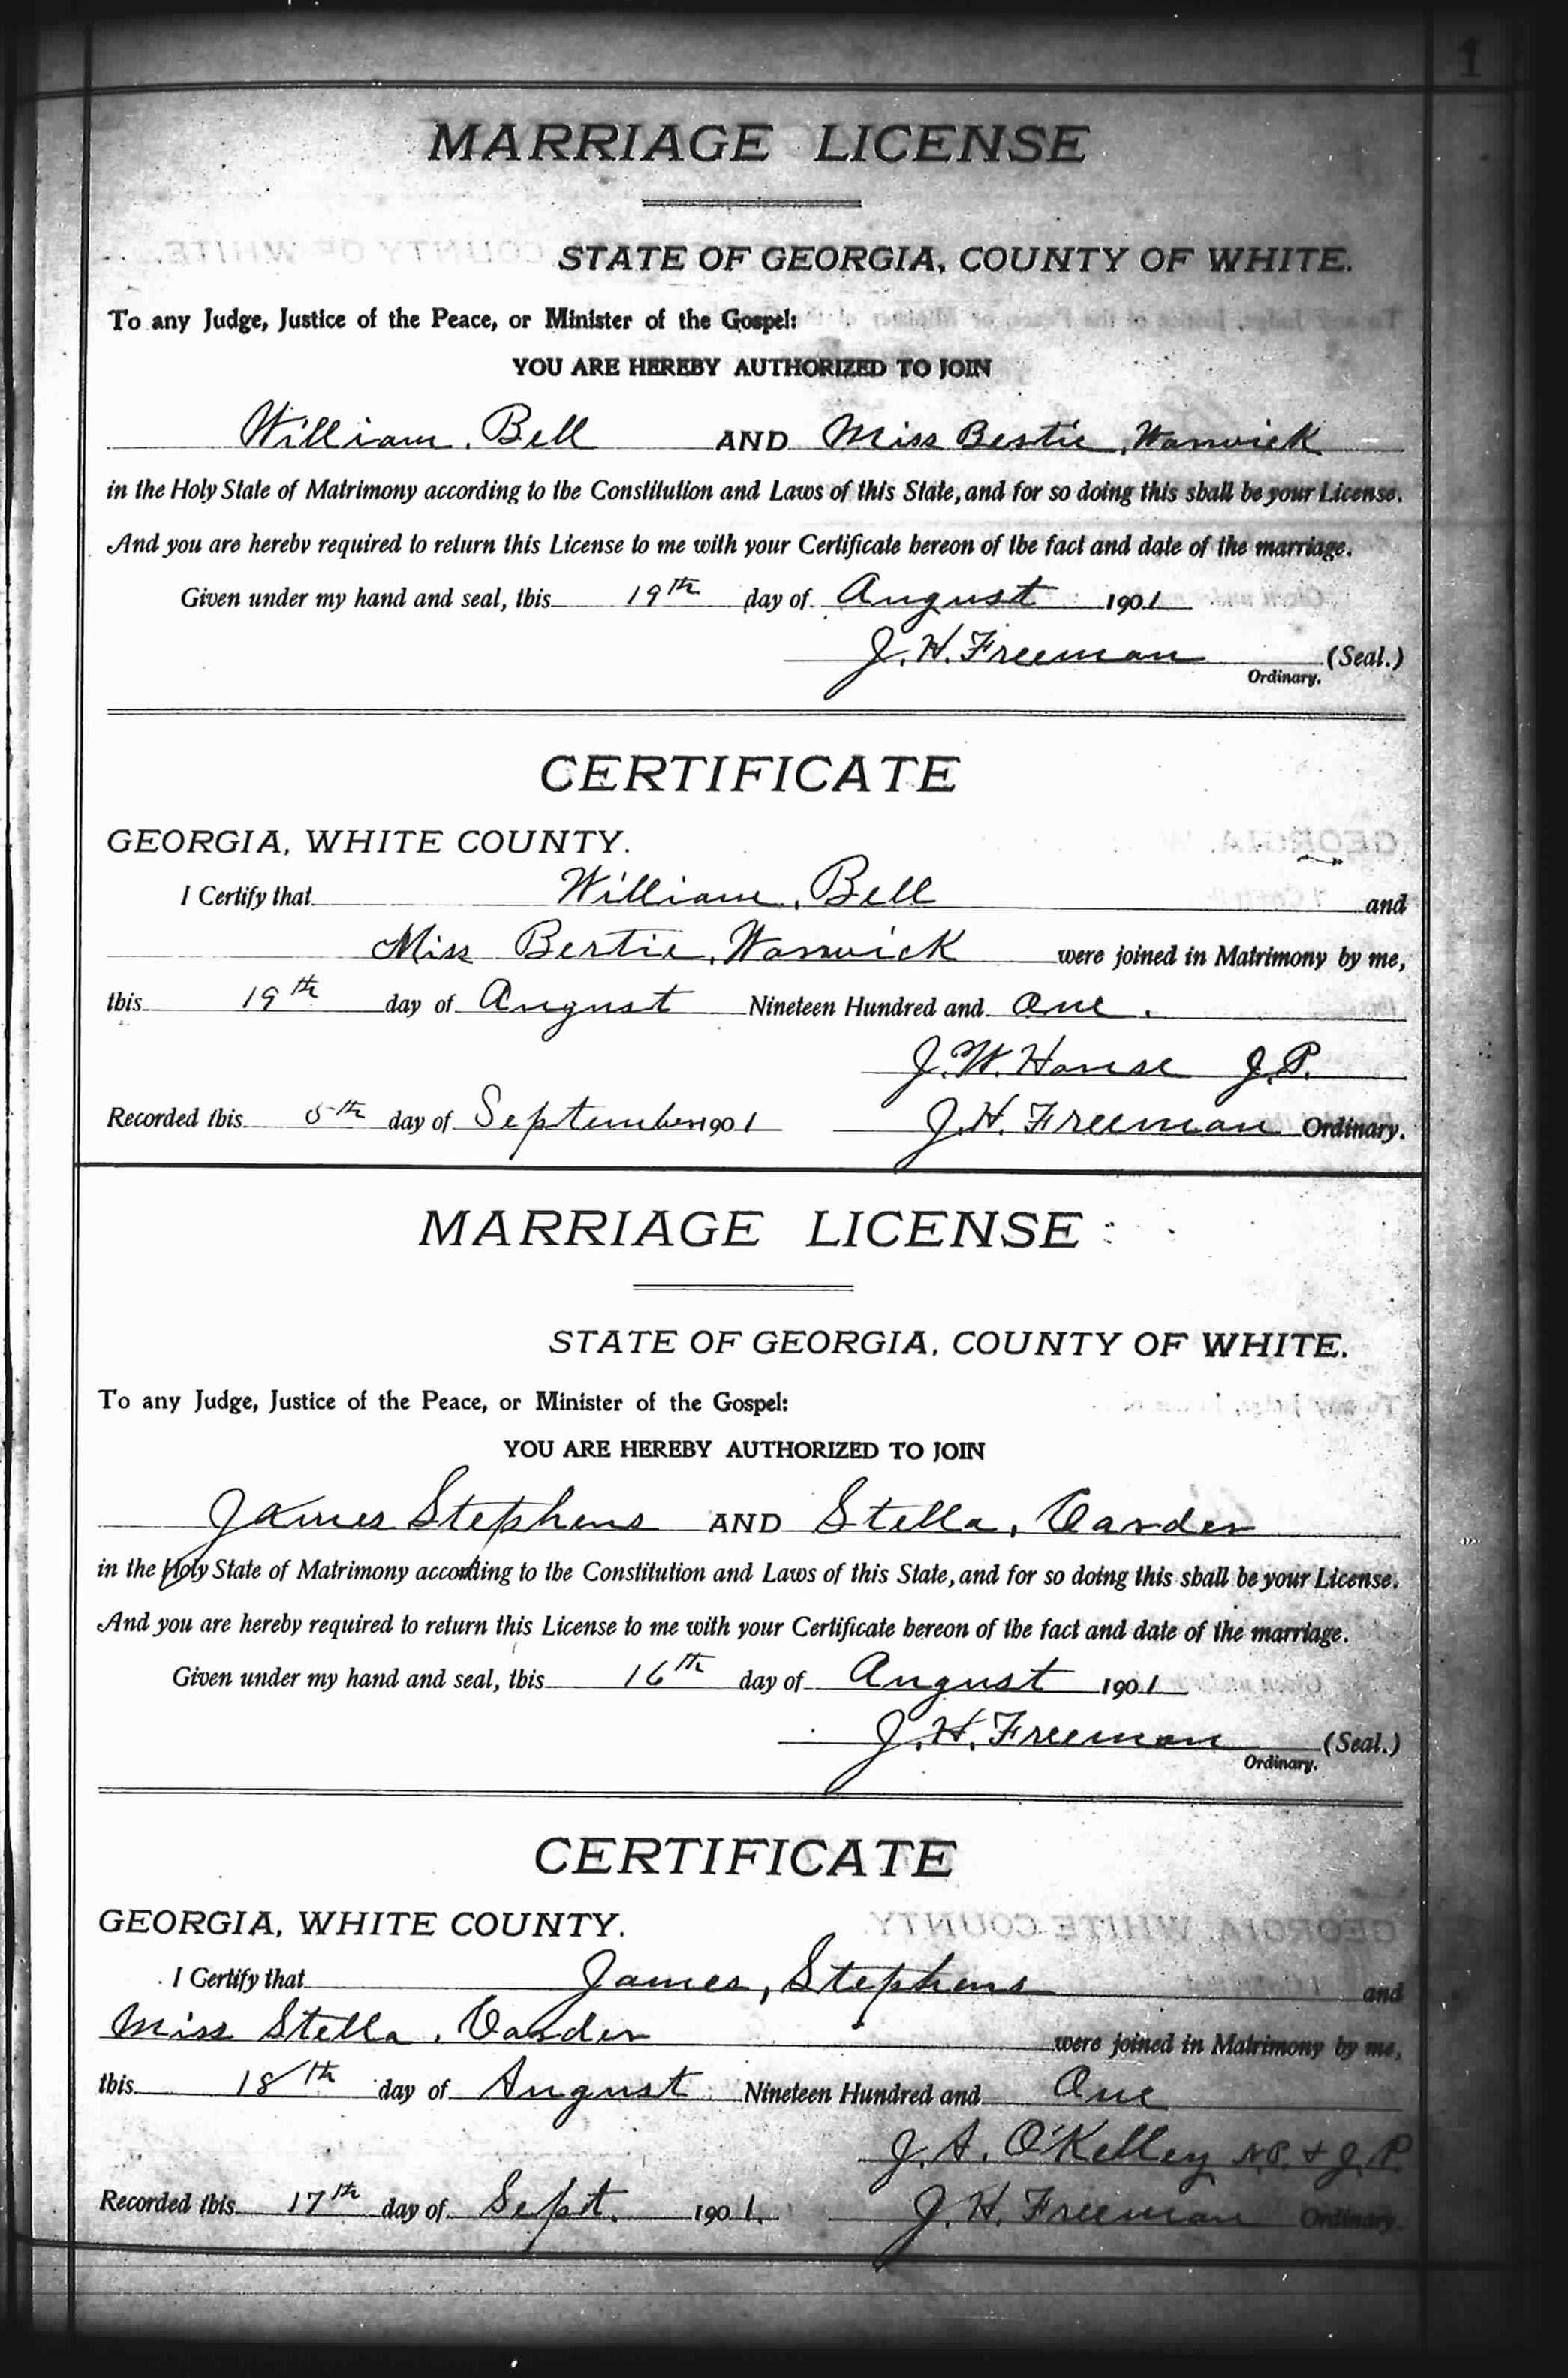 1
MARRIAGE LICENSE
STATE OF GEORGIA, COUNTY OF WHITE.
To any Judge, Justice of the Peace, or Minister of the Gospel:
YOU ARE HEREBY AUTHORIZED TO JOIN
William, Bell AND Miss Bertie, Warwick
in the Holy State of Matrimony according to the Constitution and Laws of this State, and for so doing this shall be your License.
And you are hereby required to return this License to me with your Certificate hereon of the fact and date of the marriage.
Given under my hand and seal, this 19th day of August 1901
J. H. Freeman (Seal.)
Ordinary.
CERTIFICATE
GEORGIA, WHITE COUNTY.
I Certify that William, Bell and
Miss Bertie, Warwick were joined in Matrimony by me,
this 19th day of August Nineteen Hundred and One.
J. W. House J. P.
Recorded this 5th day of September 1901 J. H. Freeman Ordinary.
MARRIAGE LICENSE
STATE OF GEORGIA, COUNTY OF WHITE.
To any Judge, Justice of the Peace, or Minister of the Gospel:
YOU ARE HEREBY AUTHORIZED TO JOIN
James Stephens AND Stella,
in the Holy State of Matrimony according to the Constitution and Laws of this State, and for so doing this shall be your License.
And you are hereby required to return this License to me with your Certificate hereon of the fact and date of the marriage.
Given under my hand and seal, this 16th day of August 1901
J. H. Freeman (Seal.)
Ordinary.
CERTIFICATE
GEORGIA, WHITE COUNTY.
I Certify that James, Stephens and
Miss Stella, were joined in Matrimony by me,
this 18th day of August Nineteen Hundred and One
J. A. O'Kelley N.P. & J. P.
Recorded this 17th day of Sept. 1901. J. H. Freeman Ordinary.